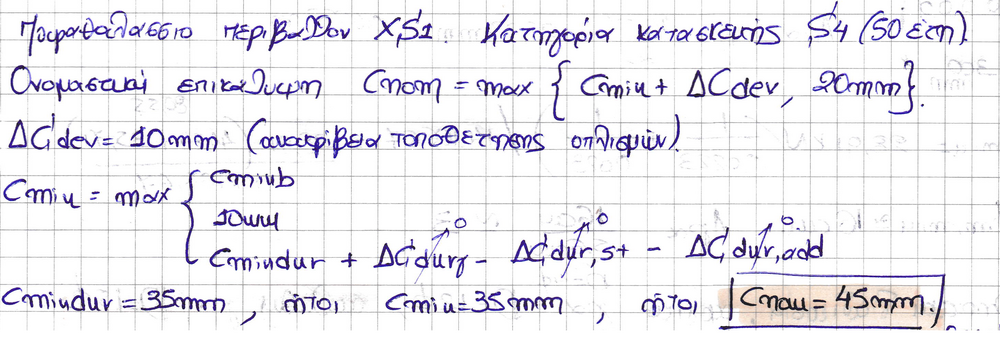 Παραθαλάσσιο περιβάλλον XS1. Κατηγορία κατασκευής S4 (50 έτη).
Ονομαστική επικάλυψη Cnom = max { Cmin + ΔCdev, 20mm}.
ΔCdev = 10mm (ανακρίβεια τοποθέτησης οπλισμών)
Cmin = max { Cminb
10mm
Cmindur + ΔCdurγ - ΔCdur,st - ΔCdur,add
0 0 0
Cmindur = 35mm, ήτοι Cmin = 35mm, ήτοι Cnom = 45mm.